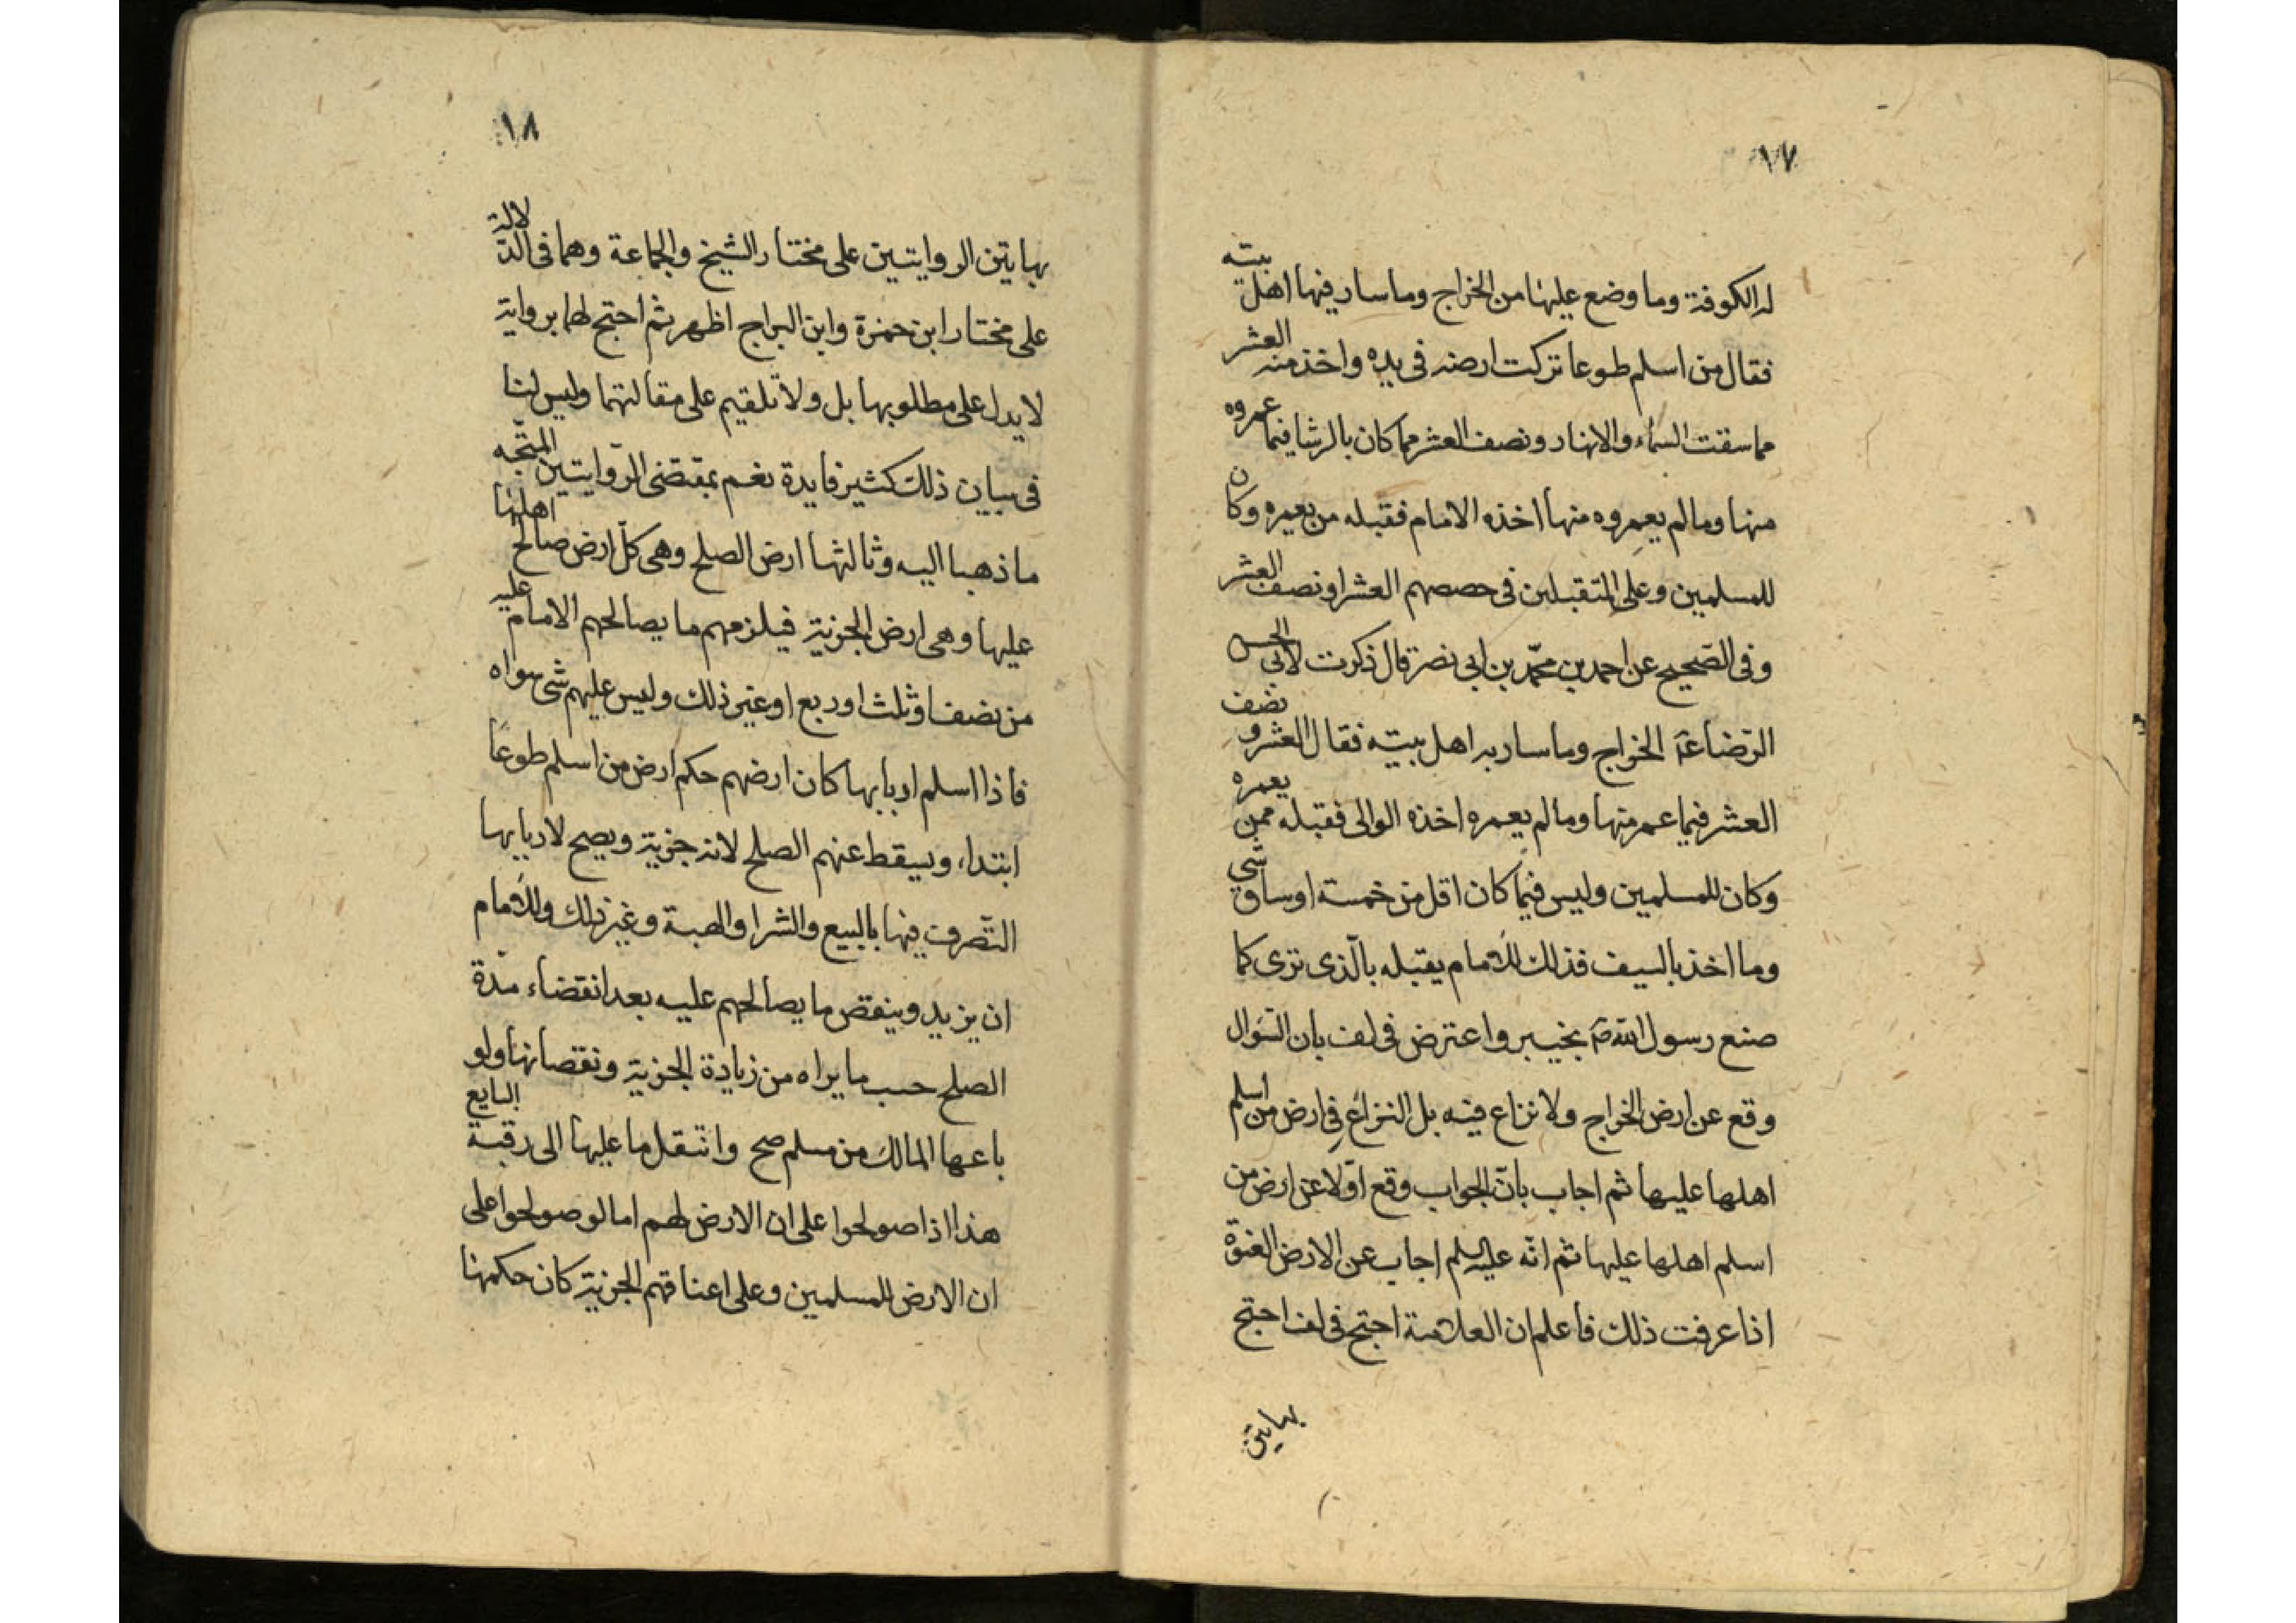 ١٧
له الكوفة وما وضع عليها من الخراج وما سار فيها اهل بيته
فقال من اسلم طوعا تركت ارضه فى يده واخذ منه العشر
مما سقت السماء والانهار ونصف العشر مما كان بالرشا فيما عمروه
منها وما لم يعمروه منها اخذه الامام فقبله من يعمره وكان
للمسلمين وعلى المتقبلين فى حصصهم العشر او نصف العشر
وفى الصّحيح عن احمد بن محمّد بن ابى نصر قال ذكرت لابى الحسن
الرّضا عٓ الخراج وما سار به اهل بيته فقال العشر و نصف
العشر فيما عمر منها وما لم يعمره اخذه الوالى فقبله ممن يعمره
وكان للمسلمين وليس فيما كان اقل من خمسة اوساق شي
وما اخذ بالسيف فذلك للامام يقبله بالّذى ترى كما
صنع رسول الله صٓ بخيبر واعترض فى لف بان السّوال
وقع عن ارض الخراج ولا نزاع فيه بل النزاع فى ارض من اسلم
اهلها عليها ثم اجاب بانّ الجواب وقع اوّلا عن ارض من
اسلم اهلها عليها ثم انّه عليه السلم اجاب عن الارض العنوة
اذا عرفت ذلك فاعلم ان العلامة احتج فى لف احتج
بهاتين
١٨
بهاتين الروايتين على مختار الشيخ والجماعة وهما فى الدّلالة
على مختار ابن حمزة وابن البراج اظهر ثم احتج لهما برواية
لا يدل على مطلوبها بل ولا تلقيم على مقالتهما وليس لنا
فى بيان ذلك كثير فايدة نعم بمقتضى الرّوايتين المتّجه
ما ذهبا اليه وثالثها ارض الصلح وهى كلّ ارض صالح اهلها
عليها وهى ارض الجزية فيلزمهم ما يصالحهم الامام عليه
من نصف او ثلث او ربع او غير ذلك وليس عليهم شى سواه
فاذا اسلم اربابها كان ارضهم حكم ارض من اسلم طوعًا
ابتداء، ويسقط عنهم الصلح لانه جزية ويصح لاربابها
التّصرف فيها بالبيع والشرا والهبة وغير ذلك وللامام
ان يزيد وينقص ما يصالحهم عليه بعد انقضاء مدّة
الصلح حسب ما يراه من زيادة الجزية ونقصانها ولو
باعها المالك من مسلم صح وانتقل ما عليها الى رقبة البايع
هذا اذا صولحوا على ان الارض لهم اما لو صولحوا على
ان الارض للمسلمين وعلى اعناقهم الجزية كان حكمها